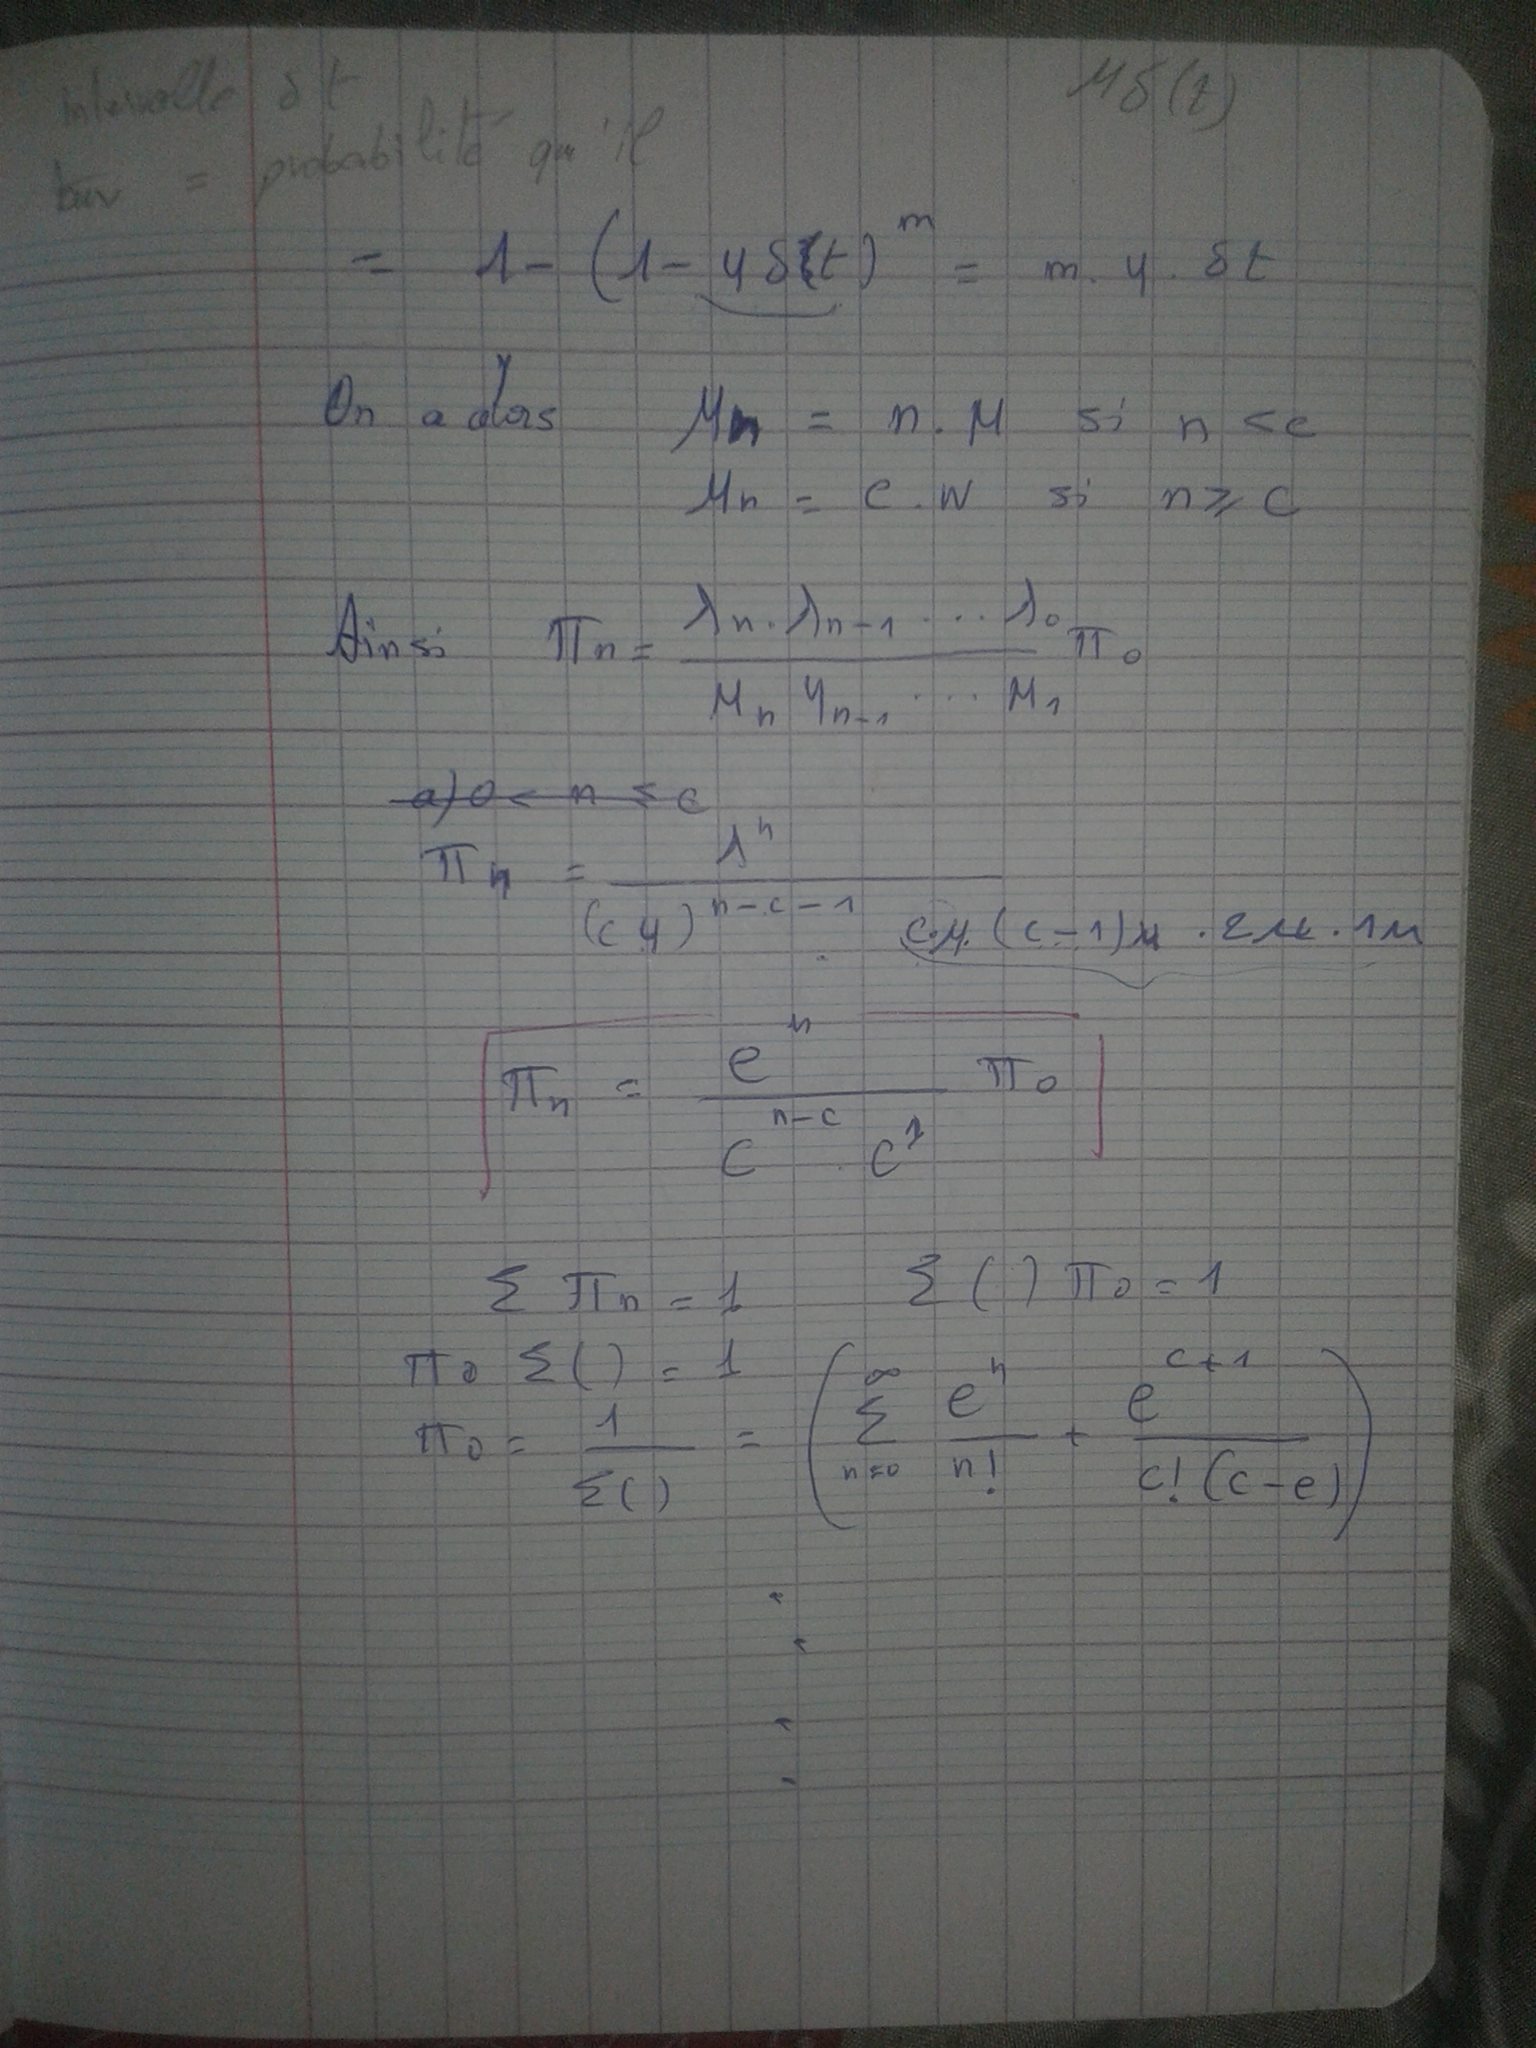 intervalle δt
μδ(t)
= probabilité qu'il
= 1 - (1 - μδ(t)^m = m . μ . δt
On a alors μn = n . μ si n < c
μn = c . μ si n ≥ c
Ainsi Πn = λn . λn-1 ... λ0 / μn μn-1 ... μ1 Π0
a) 0 < n ≤ c
Πn = λ^n / (cμ)^n-c-1 . c.μ.(c-1)μ . 2μ . 1μ
Πn = e^n / c^n-c . c! Π0
Σ Πn = 1 Σ ( ) Π0 = 1
Π0 Σ( ) = 1
Π0 = 1 / Σ( ) = ( Σ n=0 ∞ e^n / n! + e^c+1 / c! (c-e) )